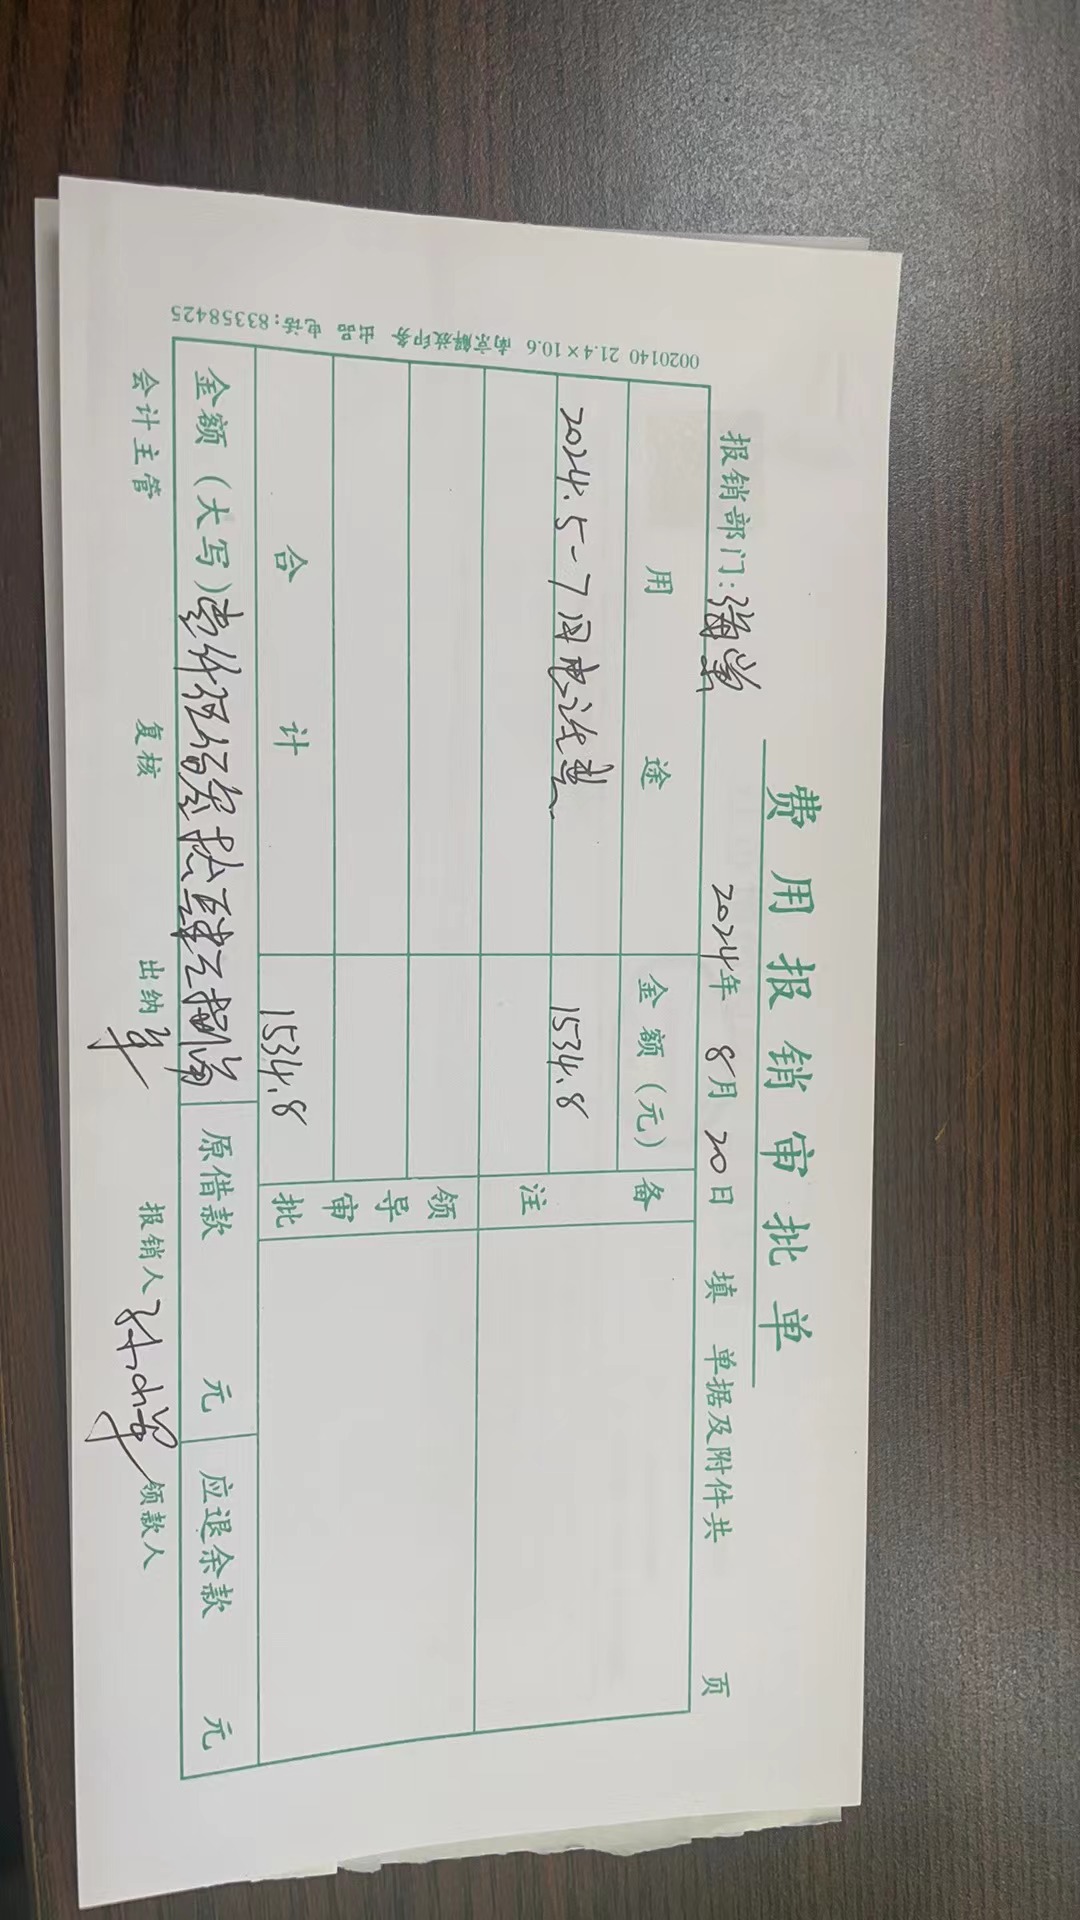 费用报销审批单
报销部门: 2024年 8月 20日 填 单据及附件共 页
用 途 金额(元) 备注
2024.5-7月电话费 1534.8
领导审批
合 计 1534.8
金额(大写)壹仟伍佰叁拾肆元捌角 原借款 元 应退余款 元
会计主管 复核 出纳 报销人 领款人
0020140 21.4×10.6 南京解放印务 出品 电话:83358425